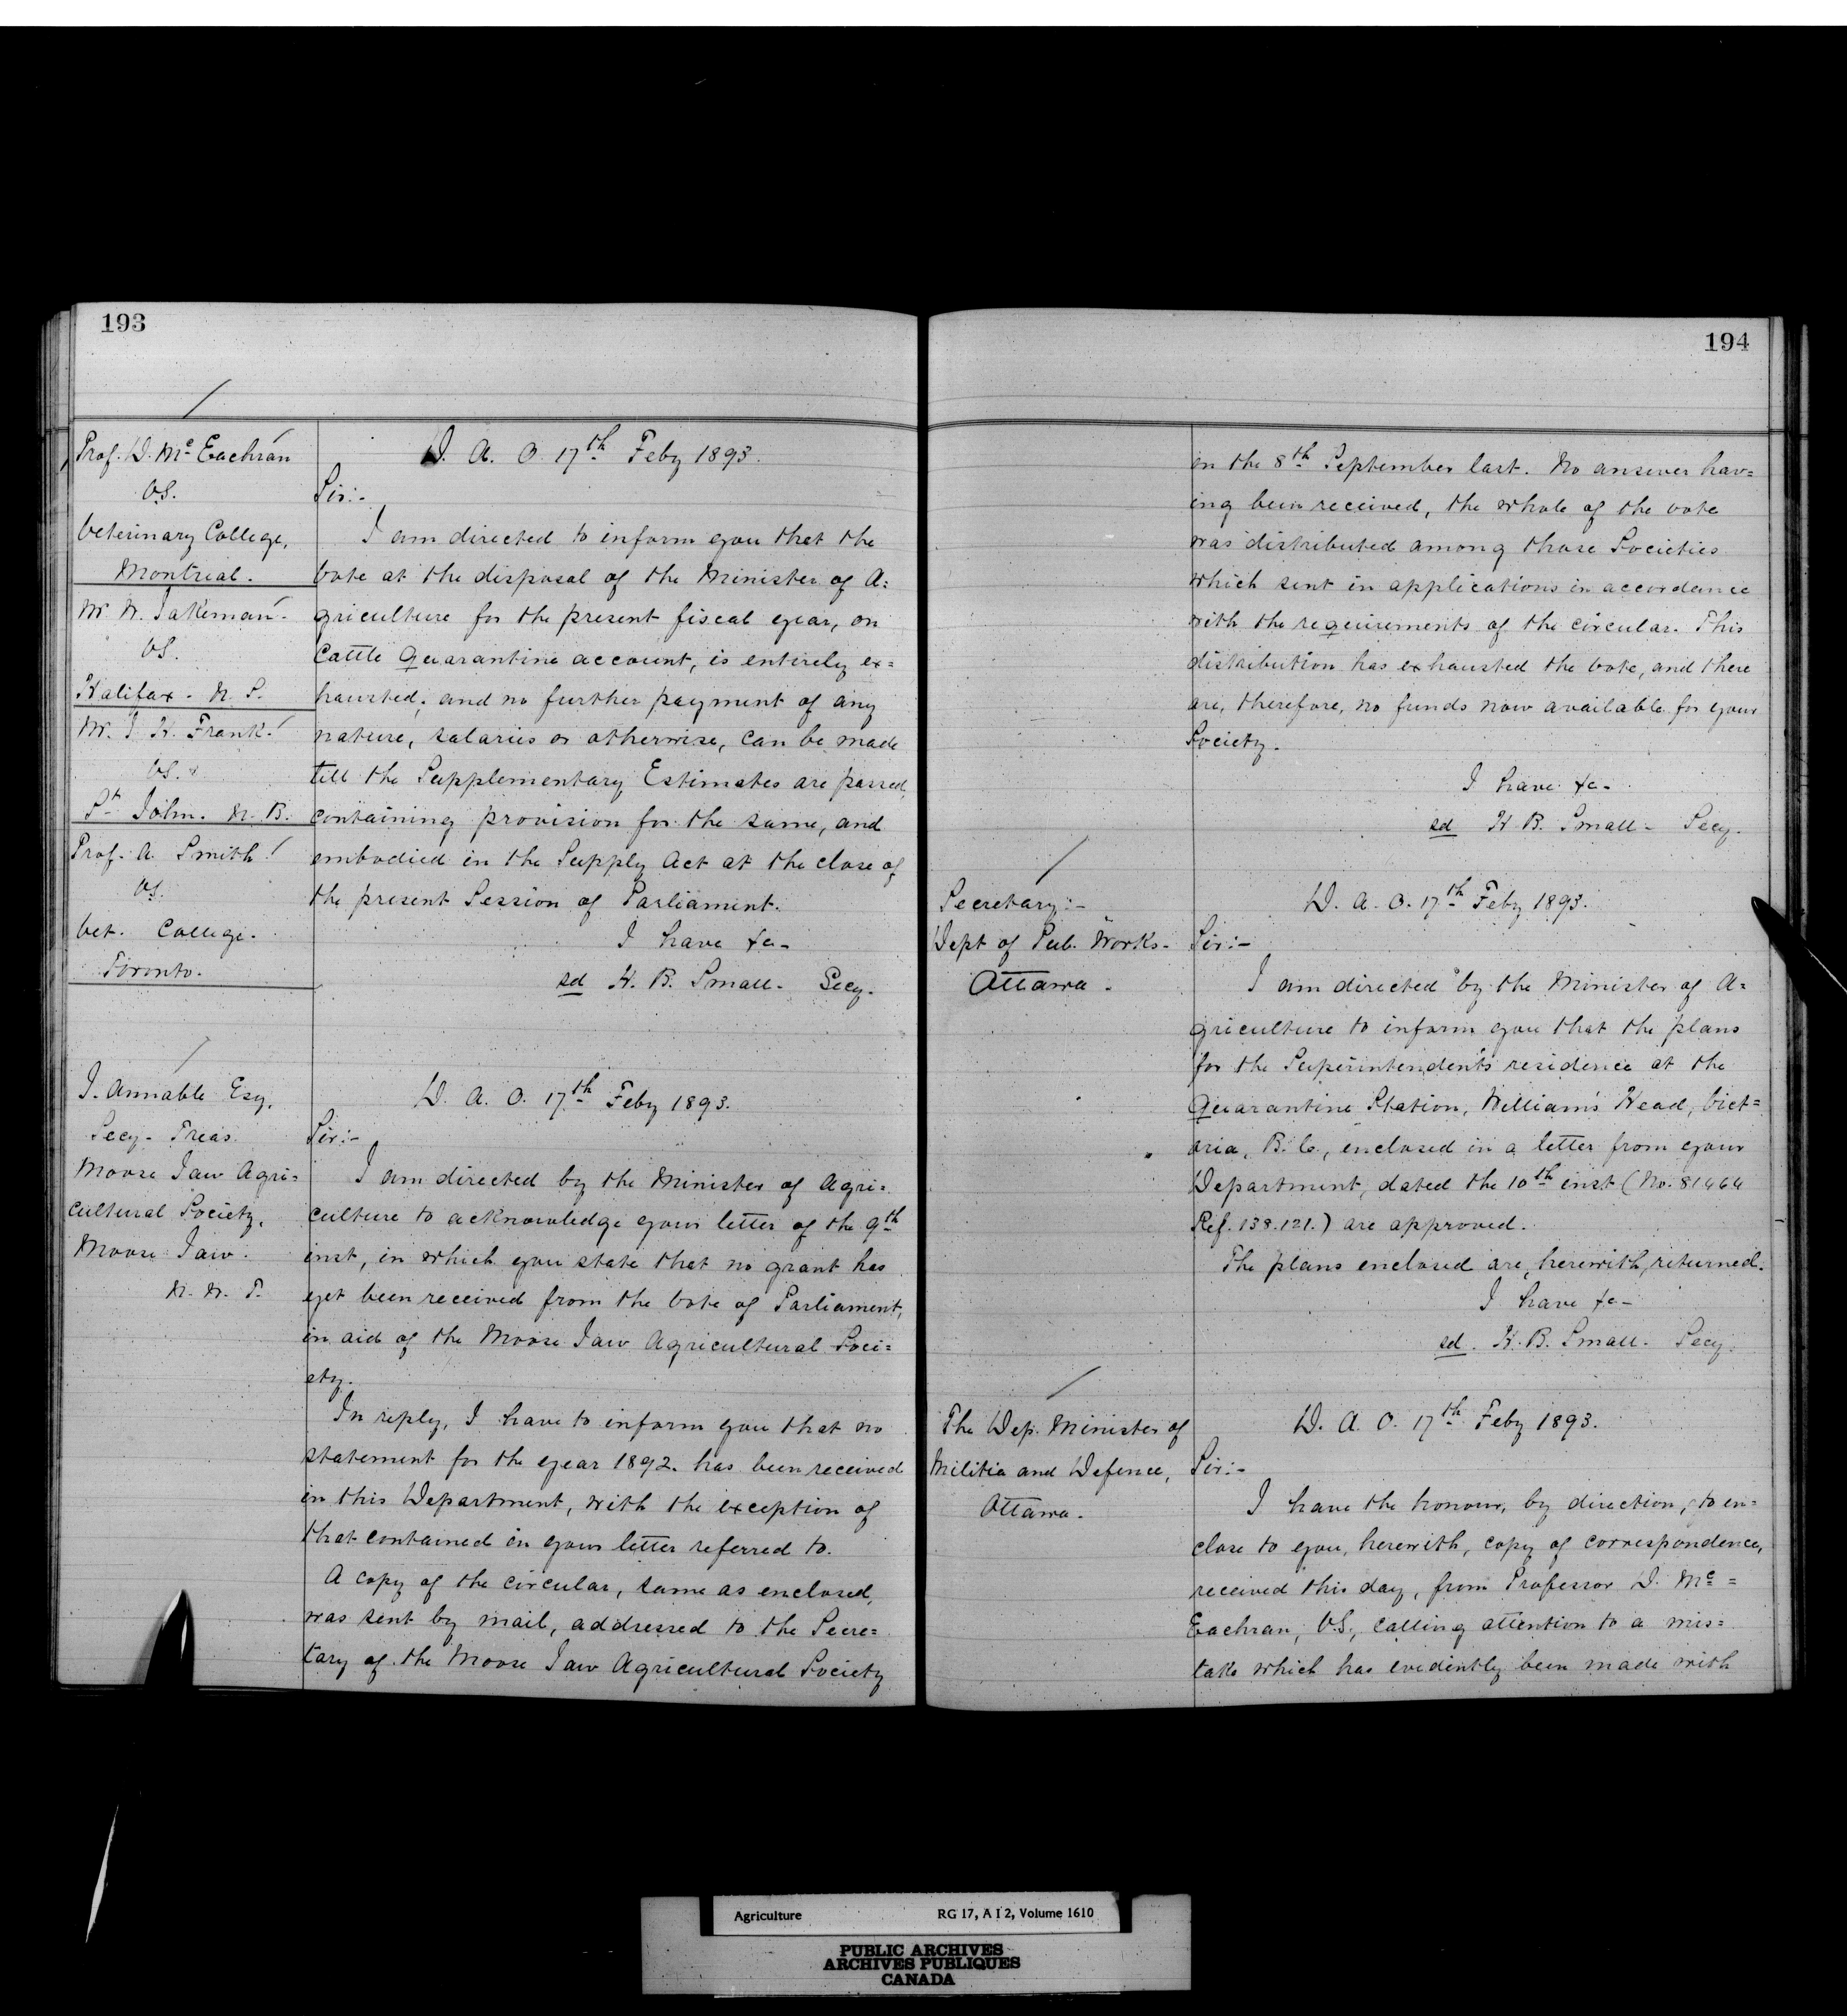 193
Prof. D. McEachran
V.S.
Veterinary College,
Montreal.
Mr W. Jakeman
V.S.
Halifax. N. S.
Mr. J. H. Frank
V.S.
St John. N. B.
Prof. A. Smith
V.S.
Vet. College.
Toronto.
D. A. O. 17th Feby 1893.
Sir:-
I am directed to inform you that the
vote at the disposal of the Minister of A=
griculture for the present fiscal year, on
Cattle Quarantine account, is entirely ex=
hausted; and no further payment of any
nature, salaries or otherwise, can be made
till the Supplementary Estimates are passed,
containing provision for the same, and
embodied in the Supply Act at the close of
the present Session of Parliament.
I have &c-
sd H. B. Small- Secy.
J. Annable Esq.
Secy- Treas.
Moose Jaw Agri=
cultural Society,
Moose Jaw.
N. W. T.
D. A. O. 17th Feby 1893.
Sir:-
I am directed by the Minister of Agri=
culture to acknowledge your letter of the 9th
inst, in which you state that no grant has
yet been received from the vote of Parliament,
in aid of the Moose Jaw Agricultural Soci=
ety.
In reply, I have to inform you that no
statement for the year 1892. has been received
in this Department, with the exception of
that contained in your letter referred to.
A copy of the circular, same as enclosed,
was sent by mail, addressed to the Secre=
tary of the Moose Jaw Agricultural Society
194
on the 8th September last. No answer hav=
ing been received, the whole of the vote
was distributed among those Societies
which sent in applications in accordance
with the requirements of the circular. This
distribution has exhausted the vote, and there
are, therefore, no funds now available for your
Society.
I have &c-
sd H. B. Small- Secy.
Secretary:-
Dept of Pub. Works-
Ottawa.
D. A. O. 17th Feby 1893.
Sir:-
I am directed by the Minister of A=
griculture to inform you that the plans
for the Superintendent's residence at the
Quarantine Station, William's Head, Vict=
oria, B. C., enclosed in a letter from your
Department, dated the 10th inst (No. 81464
Ref. 138.121.) are approved.
The plans enclosed are, herewith, returned.
I have &c-
sd. H. B. Small- Secy.
The Dep. Minister of
Militia and Defence,
Ottawa.
D. A. O. 17th Feby 1893.
Sir:-
I have the honour, by direction, to en=
close to you, herewith, copy of correspondence,
received this day, from Professor D. Mc=
Eachran, V.S., calling attention to a mis=
take which has evidently been made with
Agriculture RG 17, A I 2, Volume 1610
PUBLIC ARCHIVES
ARCHIVES PUBLIQUES
CANADA